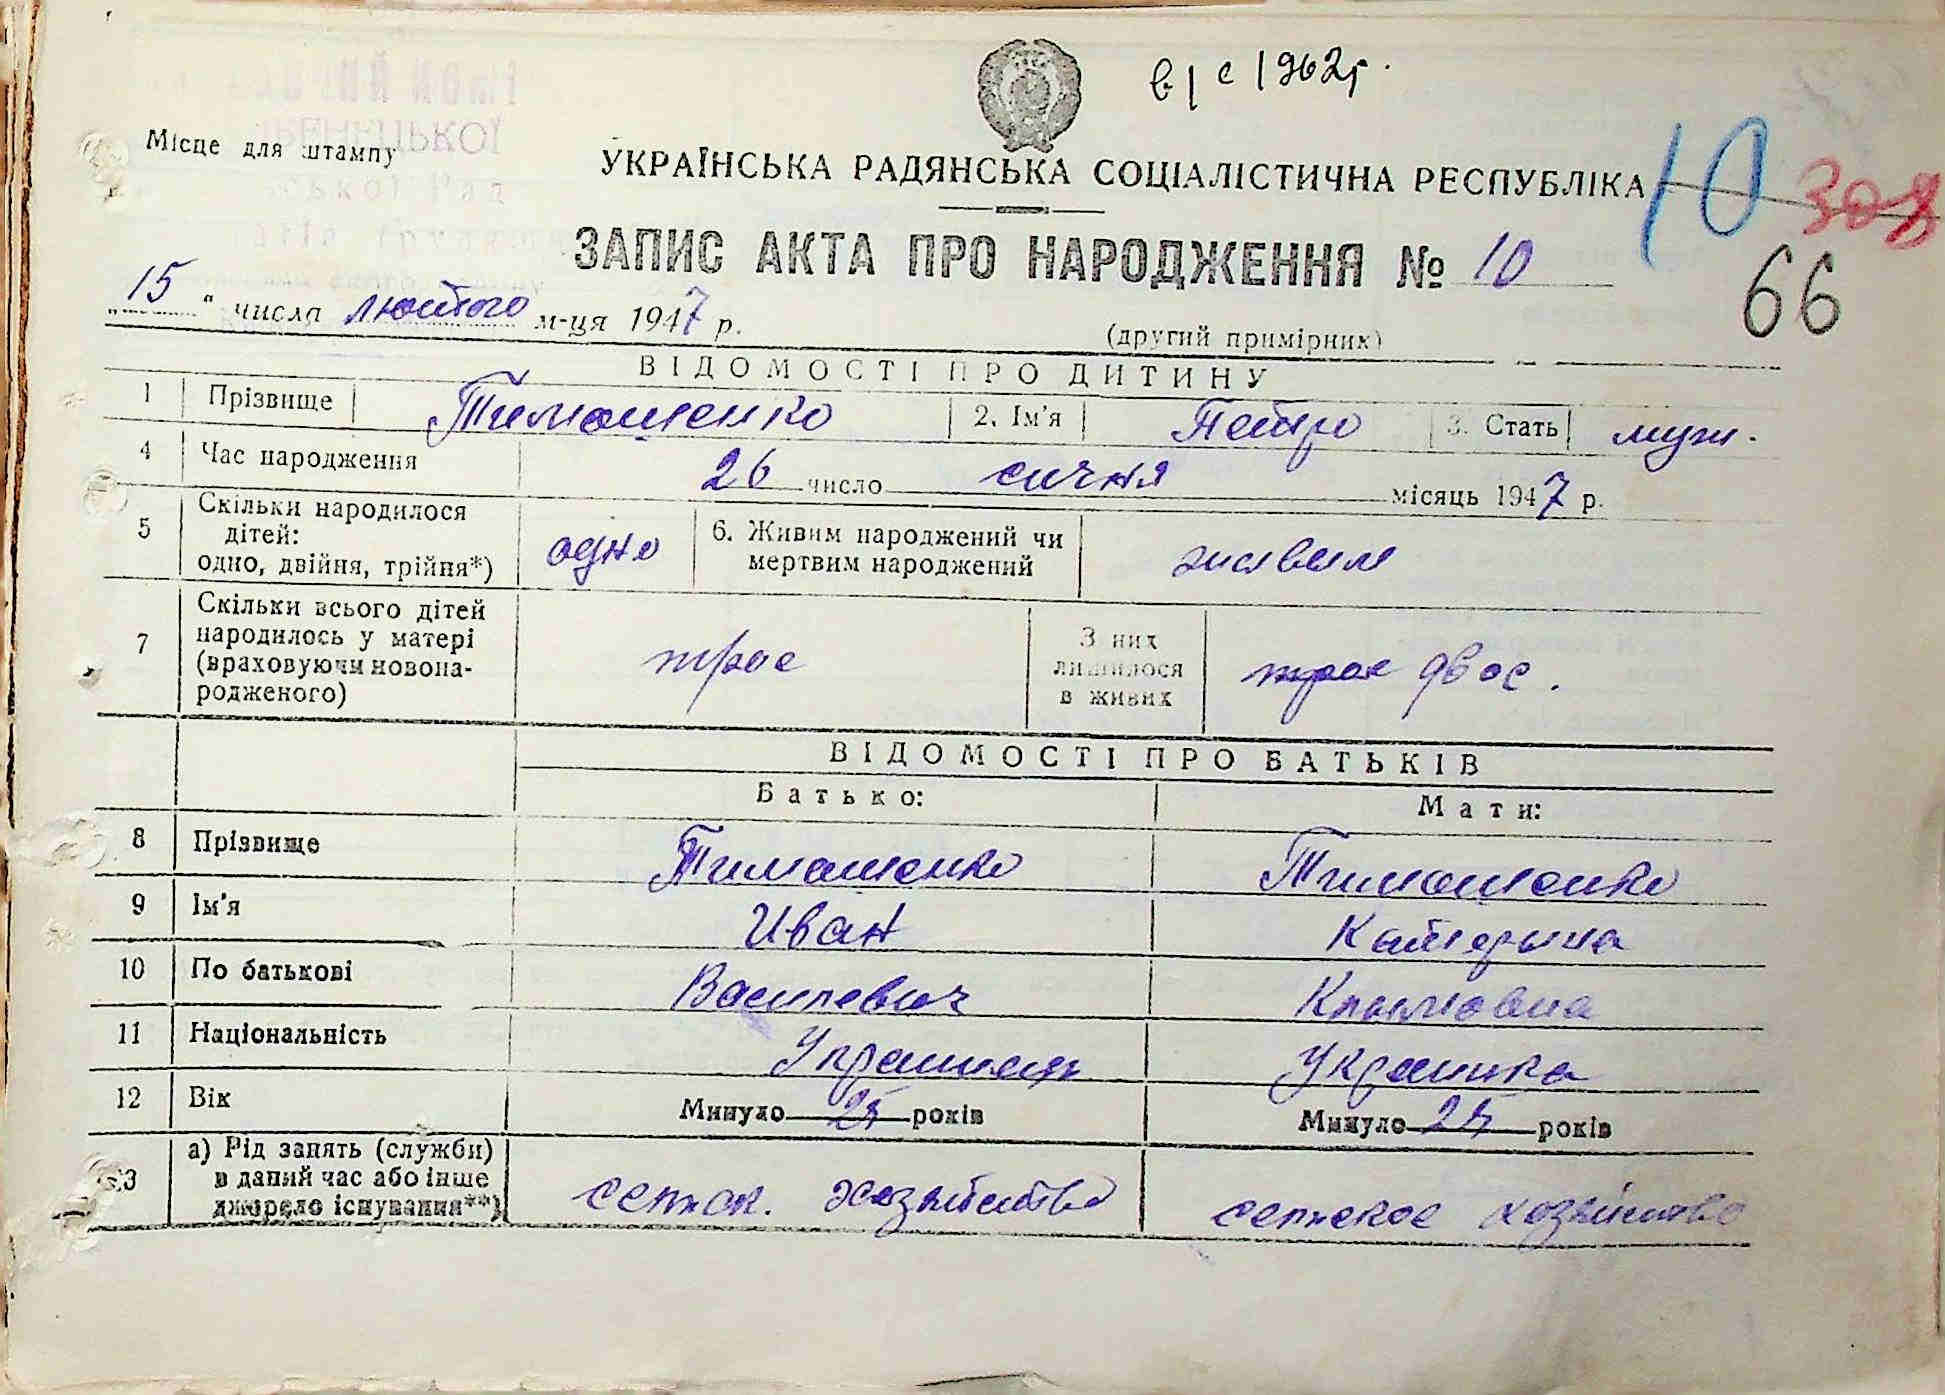 в/с 1962г.
Місце для штампу
УКРАЇНСЬКА РАДЯНСЬКА СОЦІАЛІСТИЧНА РЕСПУБЛІКА
10
308
66
ЗАПИС АКТА ПРО НАРОДЖЕННЯ № 10
"15" числа лютого м-ця 1947 р.
(другий примірник)
ВІДОМОСТІ ПРО ДИТИНУ
1 Прізвище Тимошенко 2. Ім'я Петро 3. Стать муж.
4 Час народження 26 число сичня місяць 1947 р.
5 Скільки народилося дітей: одно, двійня, трійня*) одно 6. Живим народжений чи мертвим народжений живим
7 Скільки всього дітей народилось у матері (враховуючи новонародженого) трое З них лишилося в живих трое двое.
ВІДОМОСТІ ПРО БАТЬКІВ
Батько: Мати:
8 Прізвище Тимошенко Тимошенко
9 Ім'я Иван Катерына
10 По батькові Василевич Климовна
11 Національність Украинець Украинка
12 Вік Минуло 25 років Минуло 25 років
13 а) Рід занять (служби) в даний час або інше джерело існування**) сельск. хозяйство сельское хозяйство